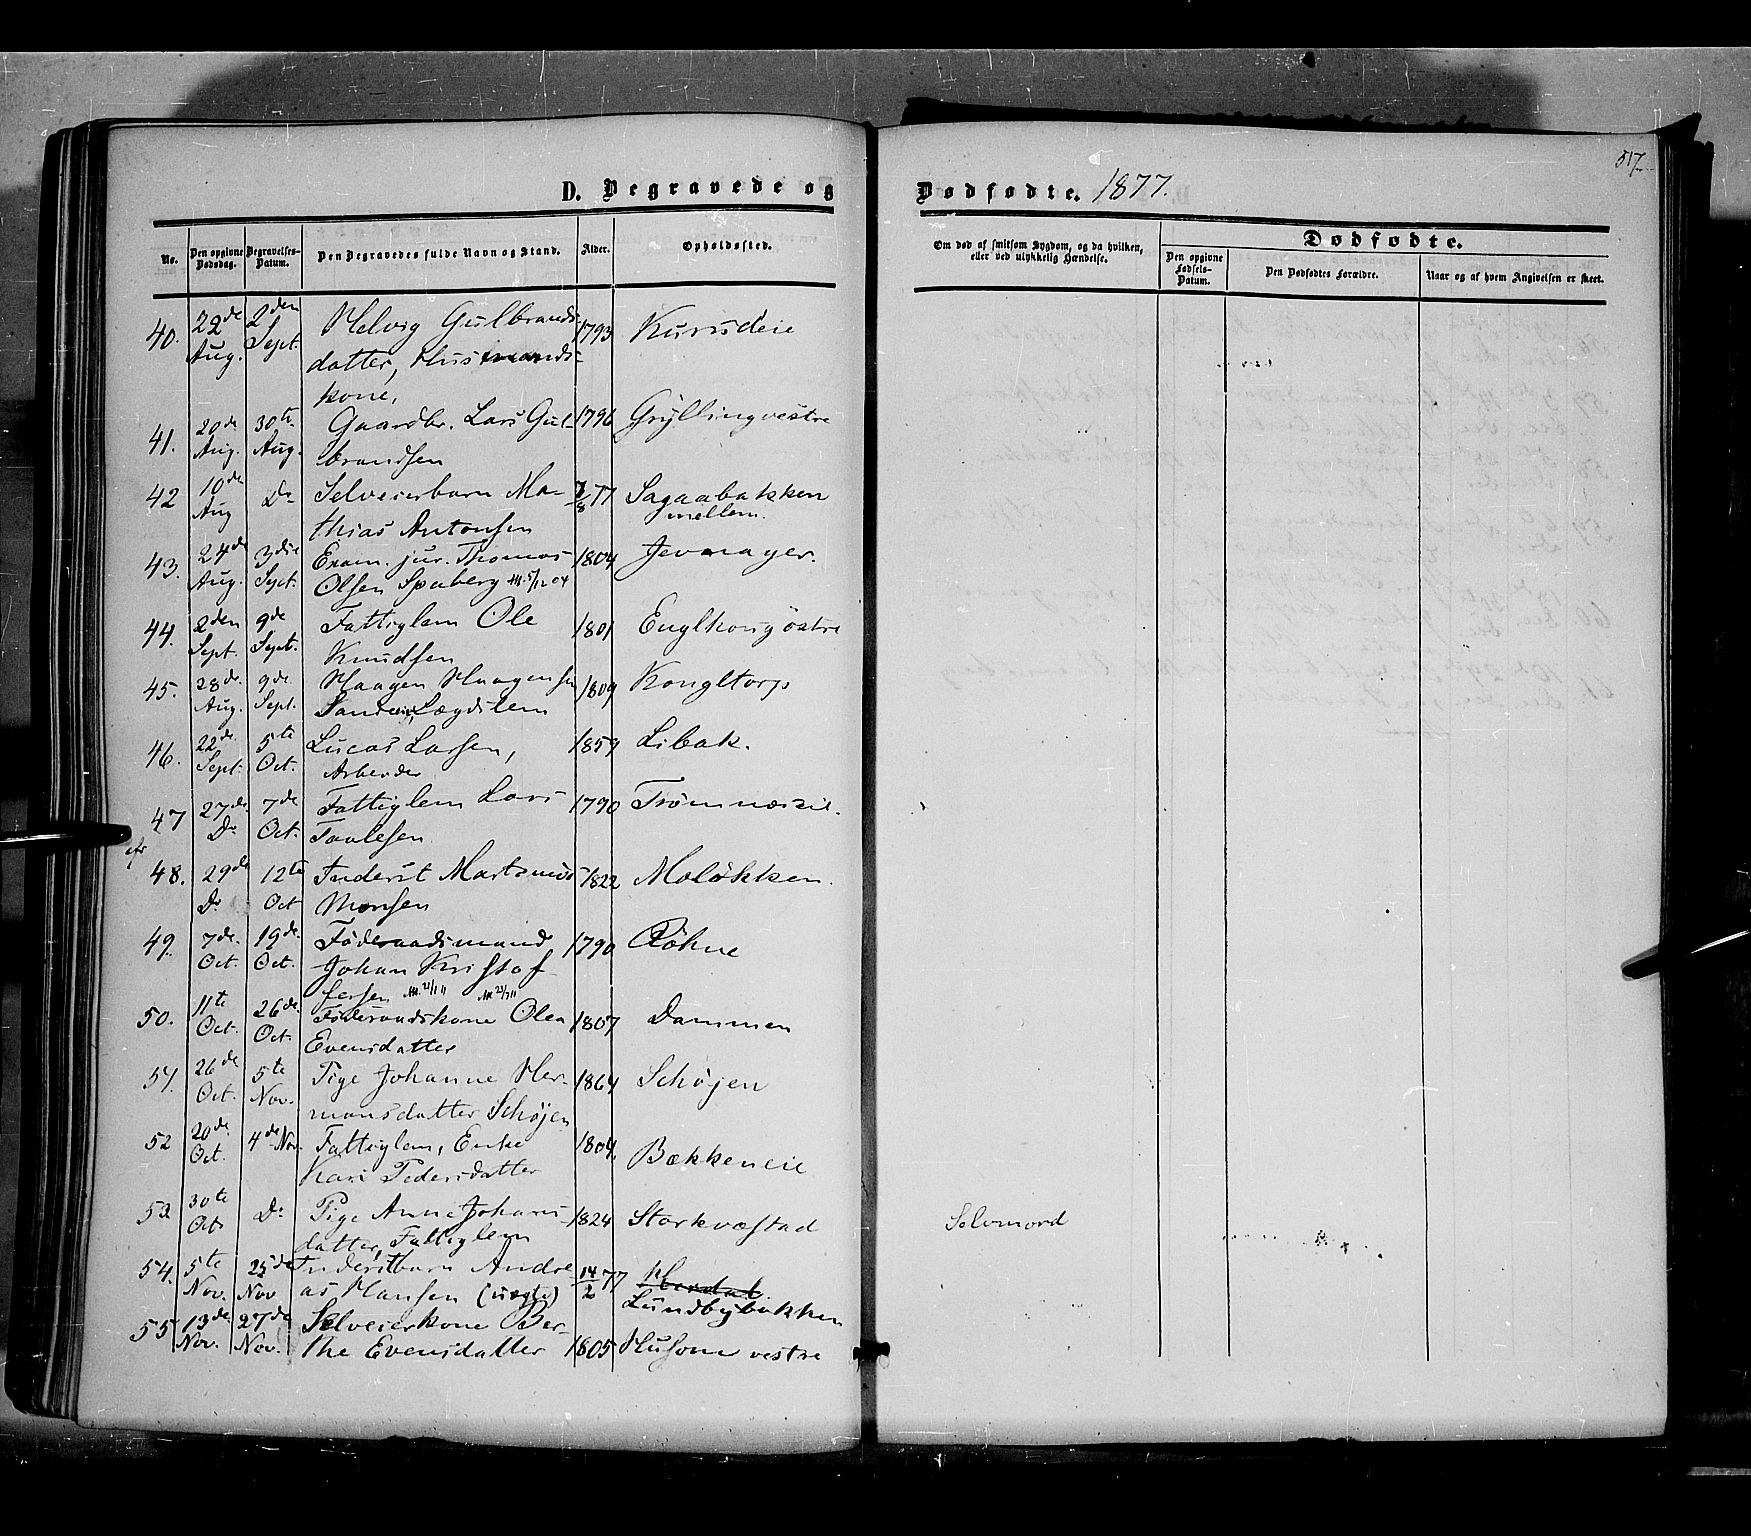 517.
D. Begravede og Dødfødte. 1877.
No. Den opgivne Dødsdag. Begravelses-Datum. Den Begravedes fulde Navn og Stand. Alder. Opholdssted. Om død af smitsom Sygdom, og da hvilken, eller ved ulykkelig Hændelse. Dødfødte. Den opgivne Fødsels-Datum. Den Dødfødtes Forældre. Naar og af hvem Angivelsen er skeet.
40. 22de Aug. 2den Sept. Helvig Gulbrands- 1793 Kurisdeie
datter, Husmands-
kone,
41. 20de Aug. 30te Aug. Gaardbr. Lars Gul- 1796 Gryllingvestre
brandsen
42 10de Aug Do Selveierbarn Ma- 7/8 77 Sagaabakken
thias Antonsen mellem.
43. 24de Aug. 3die Sept. Exam. jur. Thomas 1804 Jevnager.
Olsen Spaberg
44. 2den Sept. 9de Sept. Fattiglem Ole 1801 Englhougøstre
Knudsen
45. 28de Aug. 9de Sept. Haagen Haagensen 1809 Kongltorp
Lægdslem
46. 22de Sept. 5te Oct. Lucas Larsen, 1859 Libak.
Arbeider
47 27de Do 7de Oct. Fattiglem Lars 1790
Taalesen
48. 29de Do 12te Oct Inderst Martinius 1822 Moløkken.
Monsen
49. 7de Oct. 19de Oct. Føderaadsmand 1790 Røhne
Johan Kristof-
fersen
50. 11te Oct. 26de Oct. Føderaadskone Olea 1807 Dammen
Evensdatter
51. 26de Oct. 5te Nov. Pige Johanne Her- 1864 Schøjen
mansdatter Schøjen
52 20de Oct. 4de Nov. Fattiglem, Enke 1804. Bækkeneie
Kari Pedersdatter
53 30te Oct Do Pige Anne Johans- 1824 Storkvæstad Selvmord
datter, Fattiglem
54. 5te Nov. 25de Nov Inderstbarn Andre- 14/2 77
as Hansen (uægte) Lundbybakken
55 13de Nov. 27de Nov. Selveierkone Ber-
the Evensdatter 1805 Husom vestre